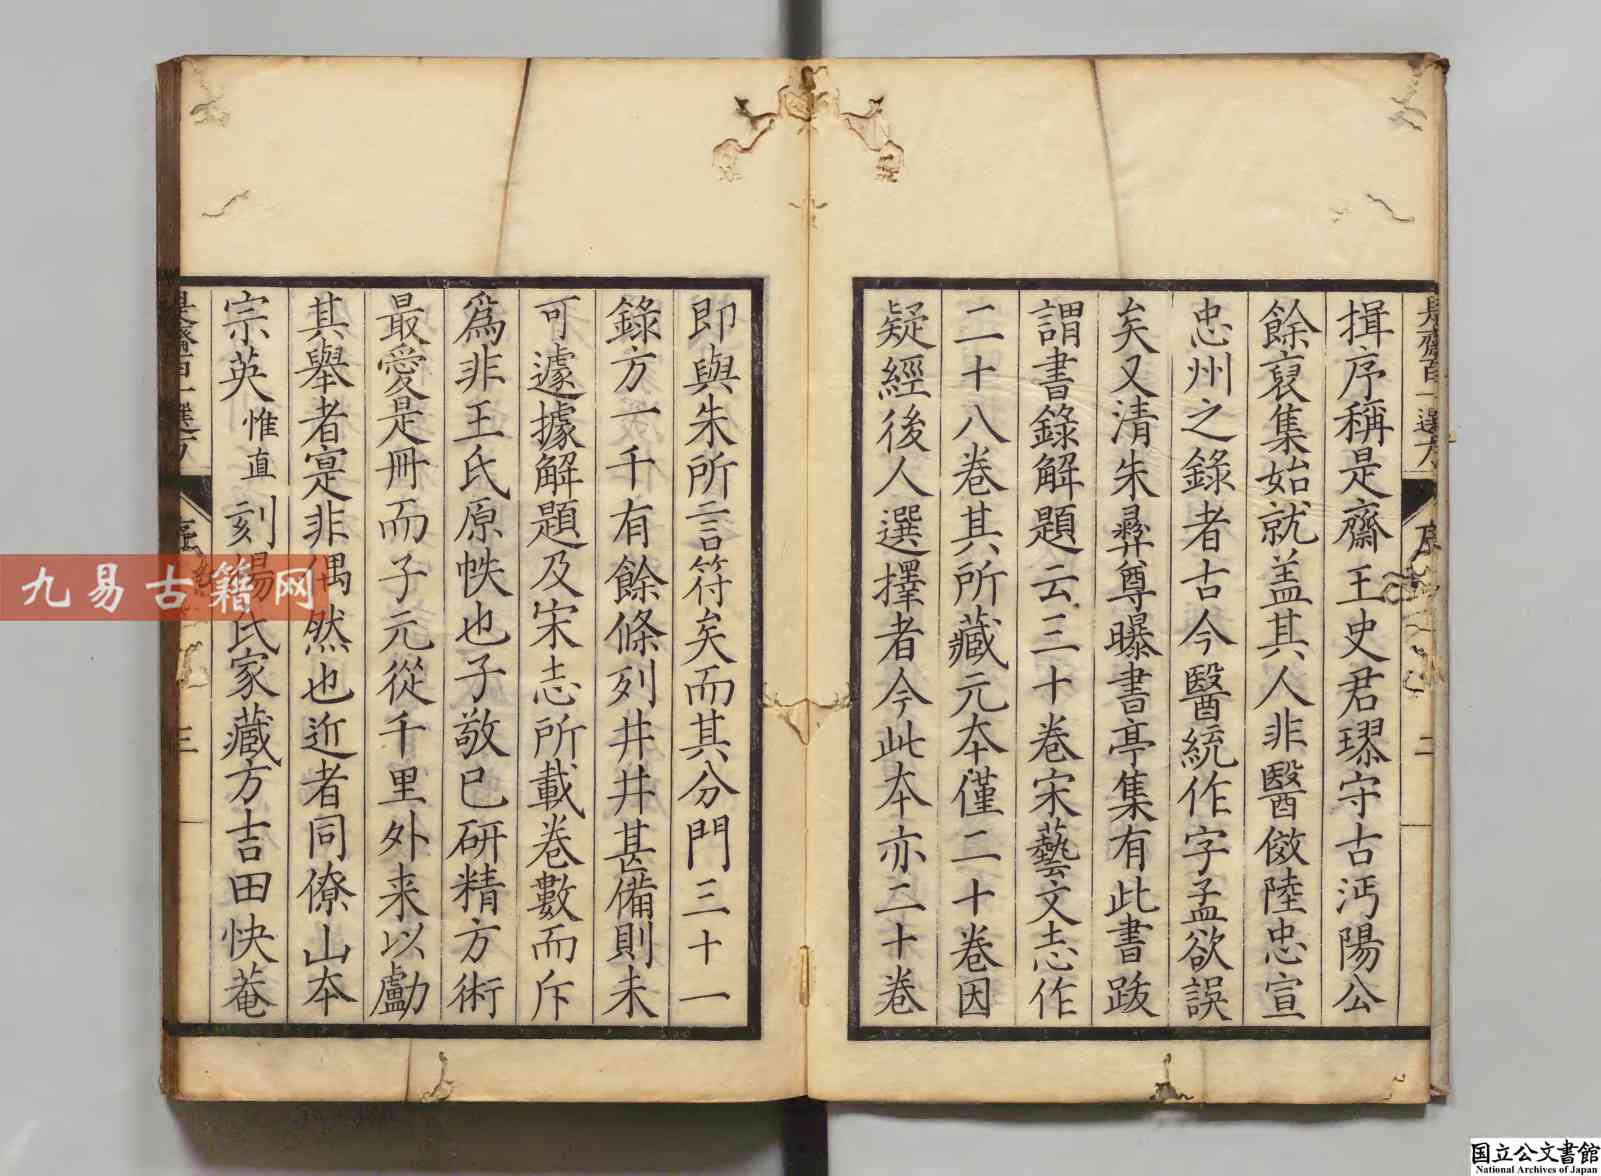 揖序稱是齋王史君璆守古沔陽公
餘裒集始就盖其人非醫倣陸忠宣
忠州之錄者古今醫統作字孟欲誤
矣又清朱彛尊曝書亭集有此書跋
謂書錄解題云三十卷宋藝文志作
二十八卷其所藏元本僅二十卷因
疑經後人選擇者今此本亦二十卷
即與朱所言符矣而其分門三十一
錄方一千有餘條列井井甚備則未
可遽據解題及宋志所載卷數而斥
爲非王氏原帙也子敬已研精方術
最愛是冊而子元從千里外来以勸
其舉者寔非偶然也近者同僚山本
宗英 惟直 刻楊氏家藏方吉田快菴
是齋百一選方
序
二
是齋百一選方
序
三
九易古籍网
国立公文書館
National Archives of Japan